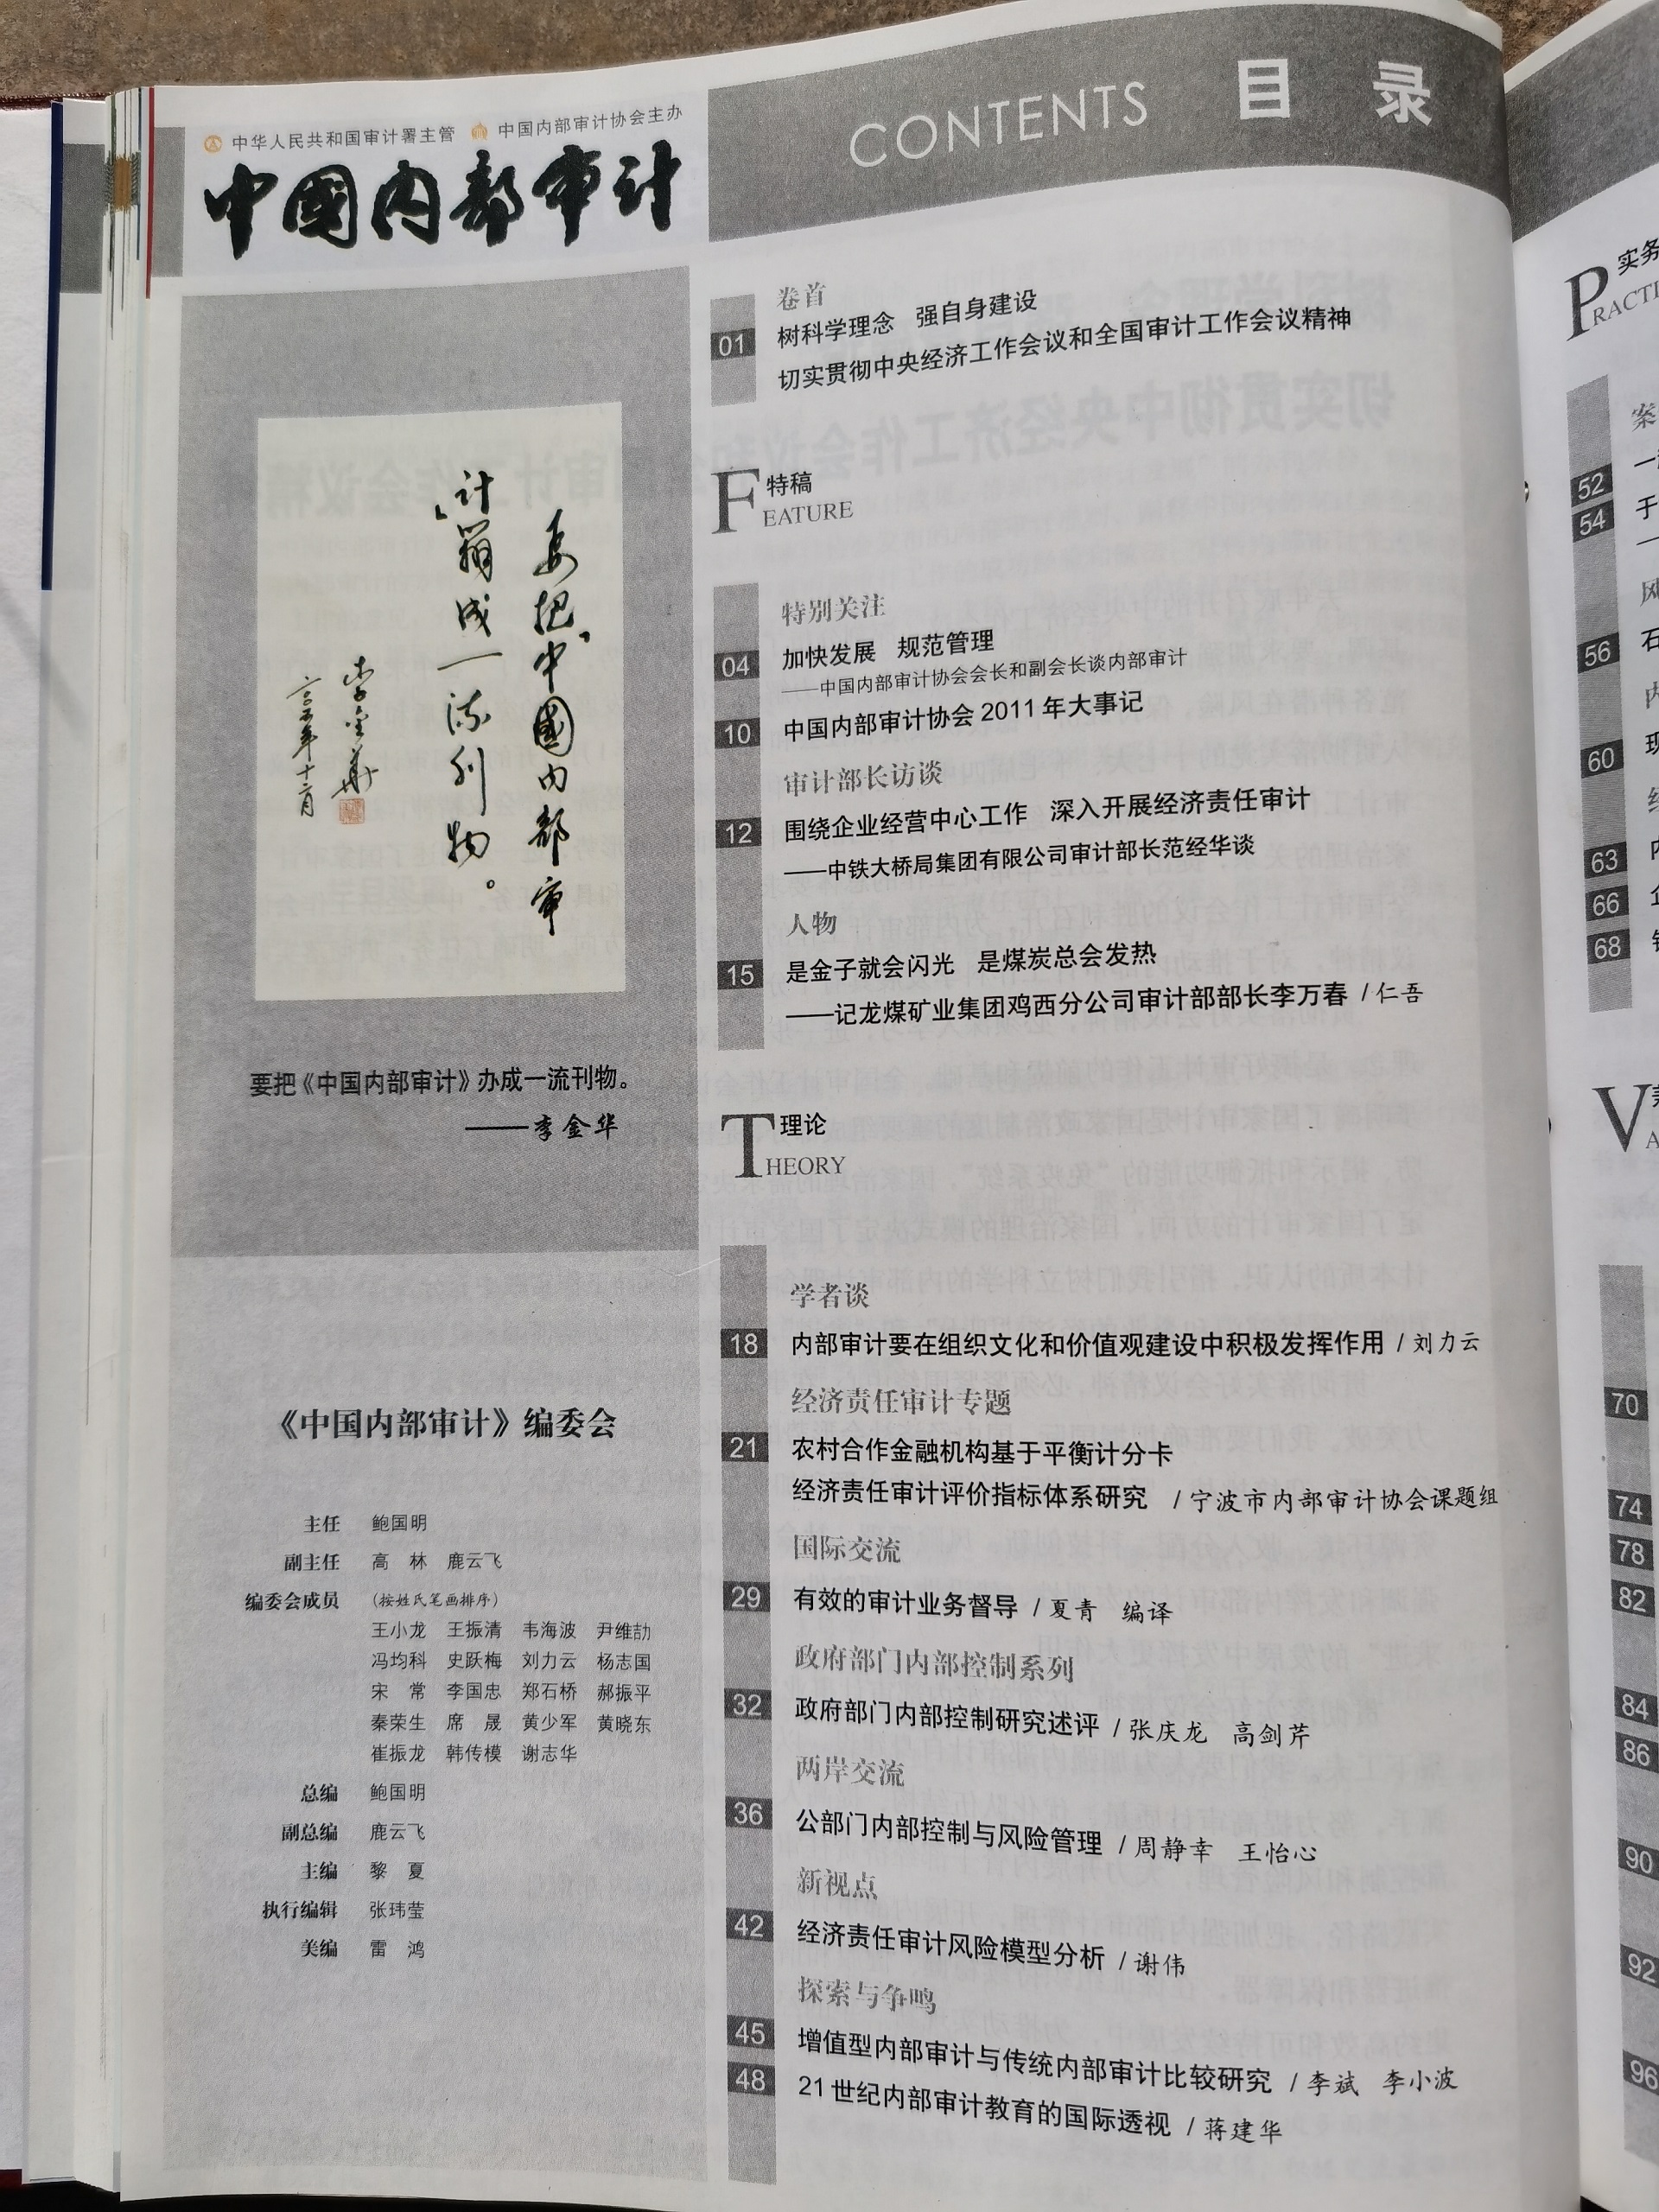 中华人民共和国审计署主管 中国内部审计协会主办
中國内部审计
CONTENTS 目 录
要把“中國内部审
计”办成一流刊物。
李金华
二〇〇五年十二月
要把《中国内部审计》办成一流刊物。
——李金华
《中国内部审计》编委会
主任 鲍国明
副主任 高 林 鹿云飞
编委会成员 (按姓氏笔画排序)
王小龙 王振清 韦海波 尹维劼
冯均科 史跃梅 刘力云 杨志国
宋 常 李国忠 郑石桥 郝振平
秦荣生 席 晟 黄少军 黄晓东
崔振龙 韩传模 谢志华
总编 鲍国明
副总编 鹿云飞
主编 黎 夏
执行编辑 张玮莹
美编 雷 鸿
卷首
01 树科学理念 强自身建设
切实贯彻中央经济工作会议和全国审计工作会议精神
特稿
FEATURE
特别关注
04 加快发展 规范管理
——中国内部审计协会会长和副会长谈内部审计
10 中国内部审计协会2011年大事记
审计部长访谈
12 围绕企业经营中心工作 深入开展经济责任审计
——中铁大桥局集团有限公司审计部长范经华谈
人物
15 是金子就会闪光 是煤炭总会发热
——记龙煤矿业集团鸡西分公司审计部部长李万春 / 仁吾
理论
THEORY
学者谈
18 内部审计要在组织文化和价值观建设中积极发挥作用 / 刘力云
经济责任审计专题
21 农村合作金融机构基于平衡计分卡
经济责任审计评价指标体系研究 / 宁波市内部审计协会课题组
国际交流
29 有效的审计业务督导 / 夏青 编译
政府部门内部控制系列
32 政府部门内部控制研究述评 / 张庆龙 高剑芹
两岸交流
36 公部门内部控制与风险管理 / 周静幸 王怡心
新视点
42 经济责任审计风险模型分析 / 谢伟
探索与争鸣
45 增值型内部审计与传统内部审计比较研究 / 李斌 李小波
48 21世纪内部审计教育的国际透视 / 蒋建华
实务
PRACTI
案
52 一
54 于
—
风
56 石
内
60 现
经
63 内
66 企
68
V
A
70
74
78
82
84
86
90
92
96